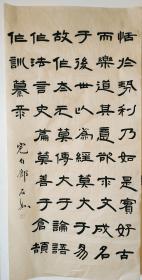 恬於勢利乃如是實好古
而樂道其意欲求文成名
于後世以為經莫大于易
故作太元莫傳大于論語
作法言史篇莫善于倉頡
作訓纂
完白鄧石如